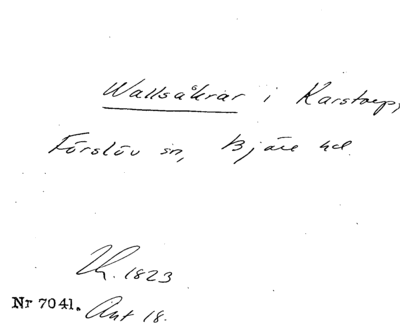 Wallsåkrar i Karstorp,
Förslöv sn, Bjäre hd
1823
Nr 7041. Akt 18.